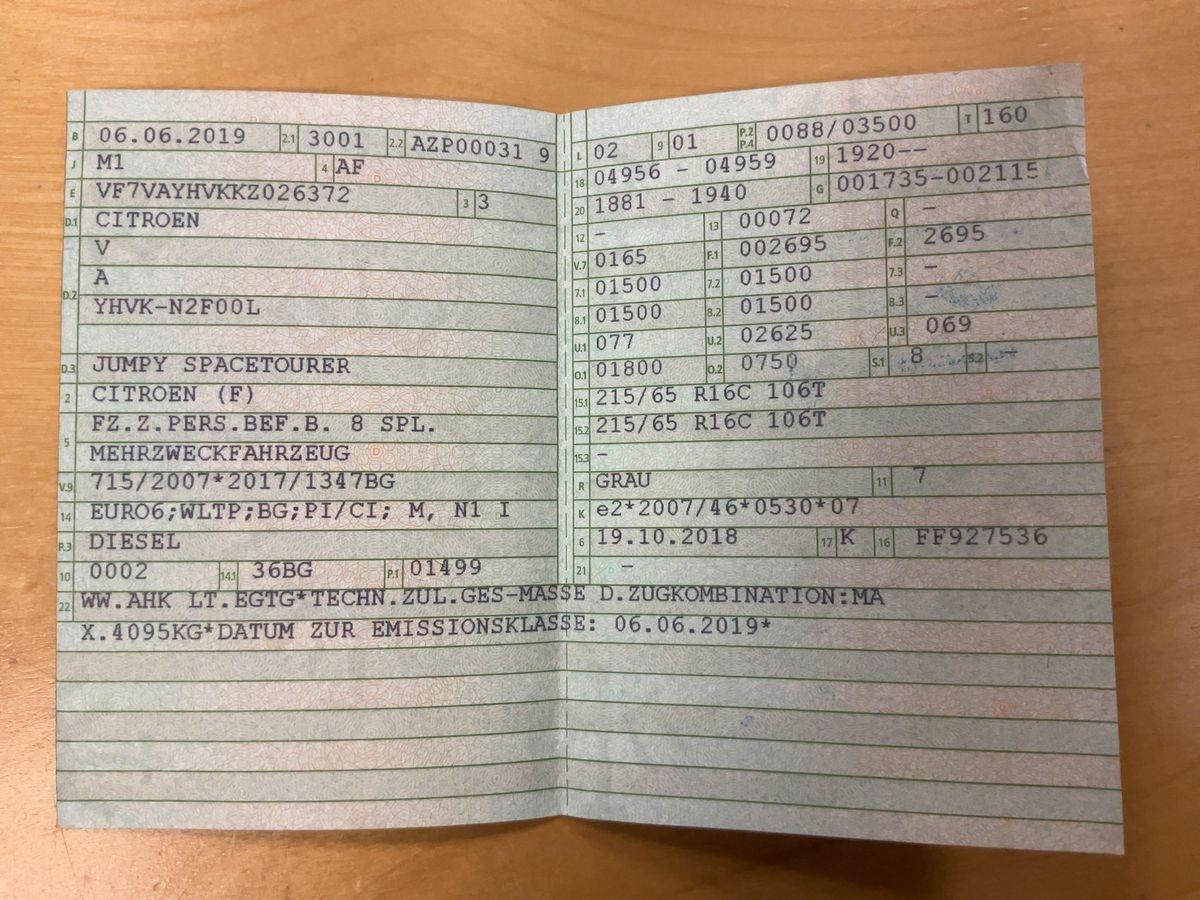 B 06.06.2019 2.1 3001 2.2 AZP00031 9
J M1 4 AF
E VF7VAYHVKKZ026372 3 3
D.1 CITROEN
D.2 V
A
YHVK-N2F00L
D.3 JUMPY SPACETOURER
2 CITROEN (F)
5 FZ.Z.PERS.BEF.B. 8 SPL.
MEHRZWECKFAHRZEUG
V.9 715/2007*2017/1347BG
14 EURO6;WLTP;BG;PI/CI; M, N1 I
P.3 DIESEL
10 0002 14.1 36BG P.1 01499
L 02 9 01 P.2 P.4 0088/03500 T 160
18 04956 - 04959 19 1920--
20 1881 - 1940 G 001735-002115
12 - 13 00072 Q -
V.7 0165 F.1 002695 F.2 2695
7.1 01500 7.2 01500 7.3 -
8.1 01500 8.2 01500 8.3 -
U.1 077 U.2 02625 U.3 069
O.1 01800 O.2 0750 S.1 8 S.2 -
15.1 215/65 R16C 106T
15.2 215/65 R16C 106T
15.3 -
R GRAU 11 7
K e2*2007/46*0530*07
6 19.10.2018 17 K 16 FF927536
21 -
22 WW.AHK LT.EGTG*TECHN.ZUL.GES-MASSE D.ZUGKOMBINATION:MA
X.4095KG*DATUM ZUR EMISSIONSKLASSE: 06.06.2019*